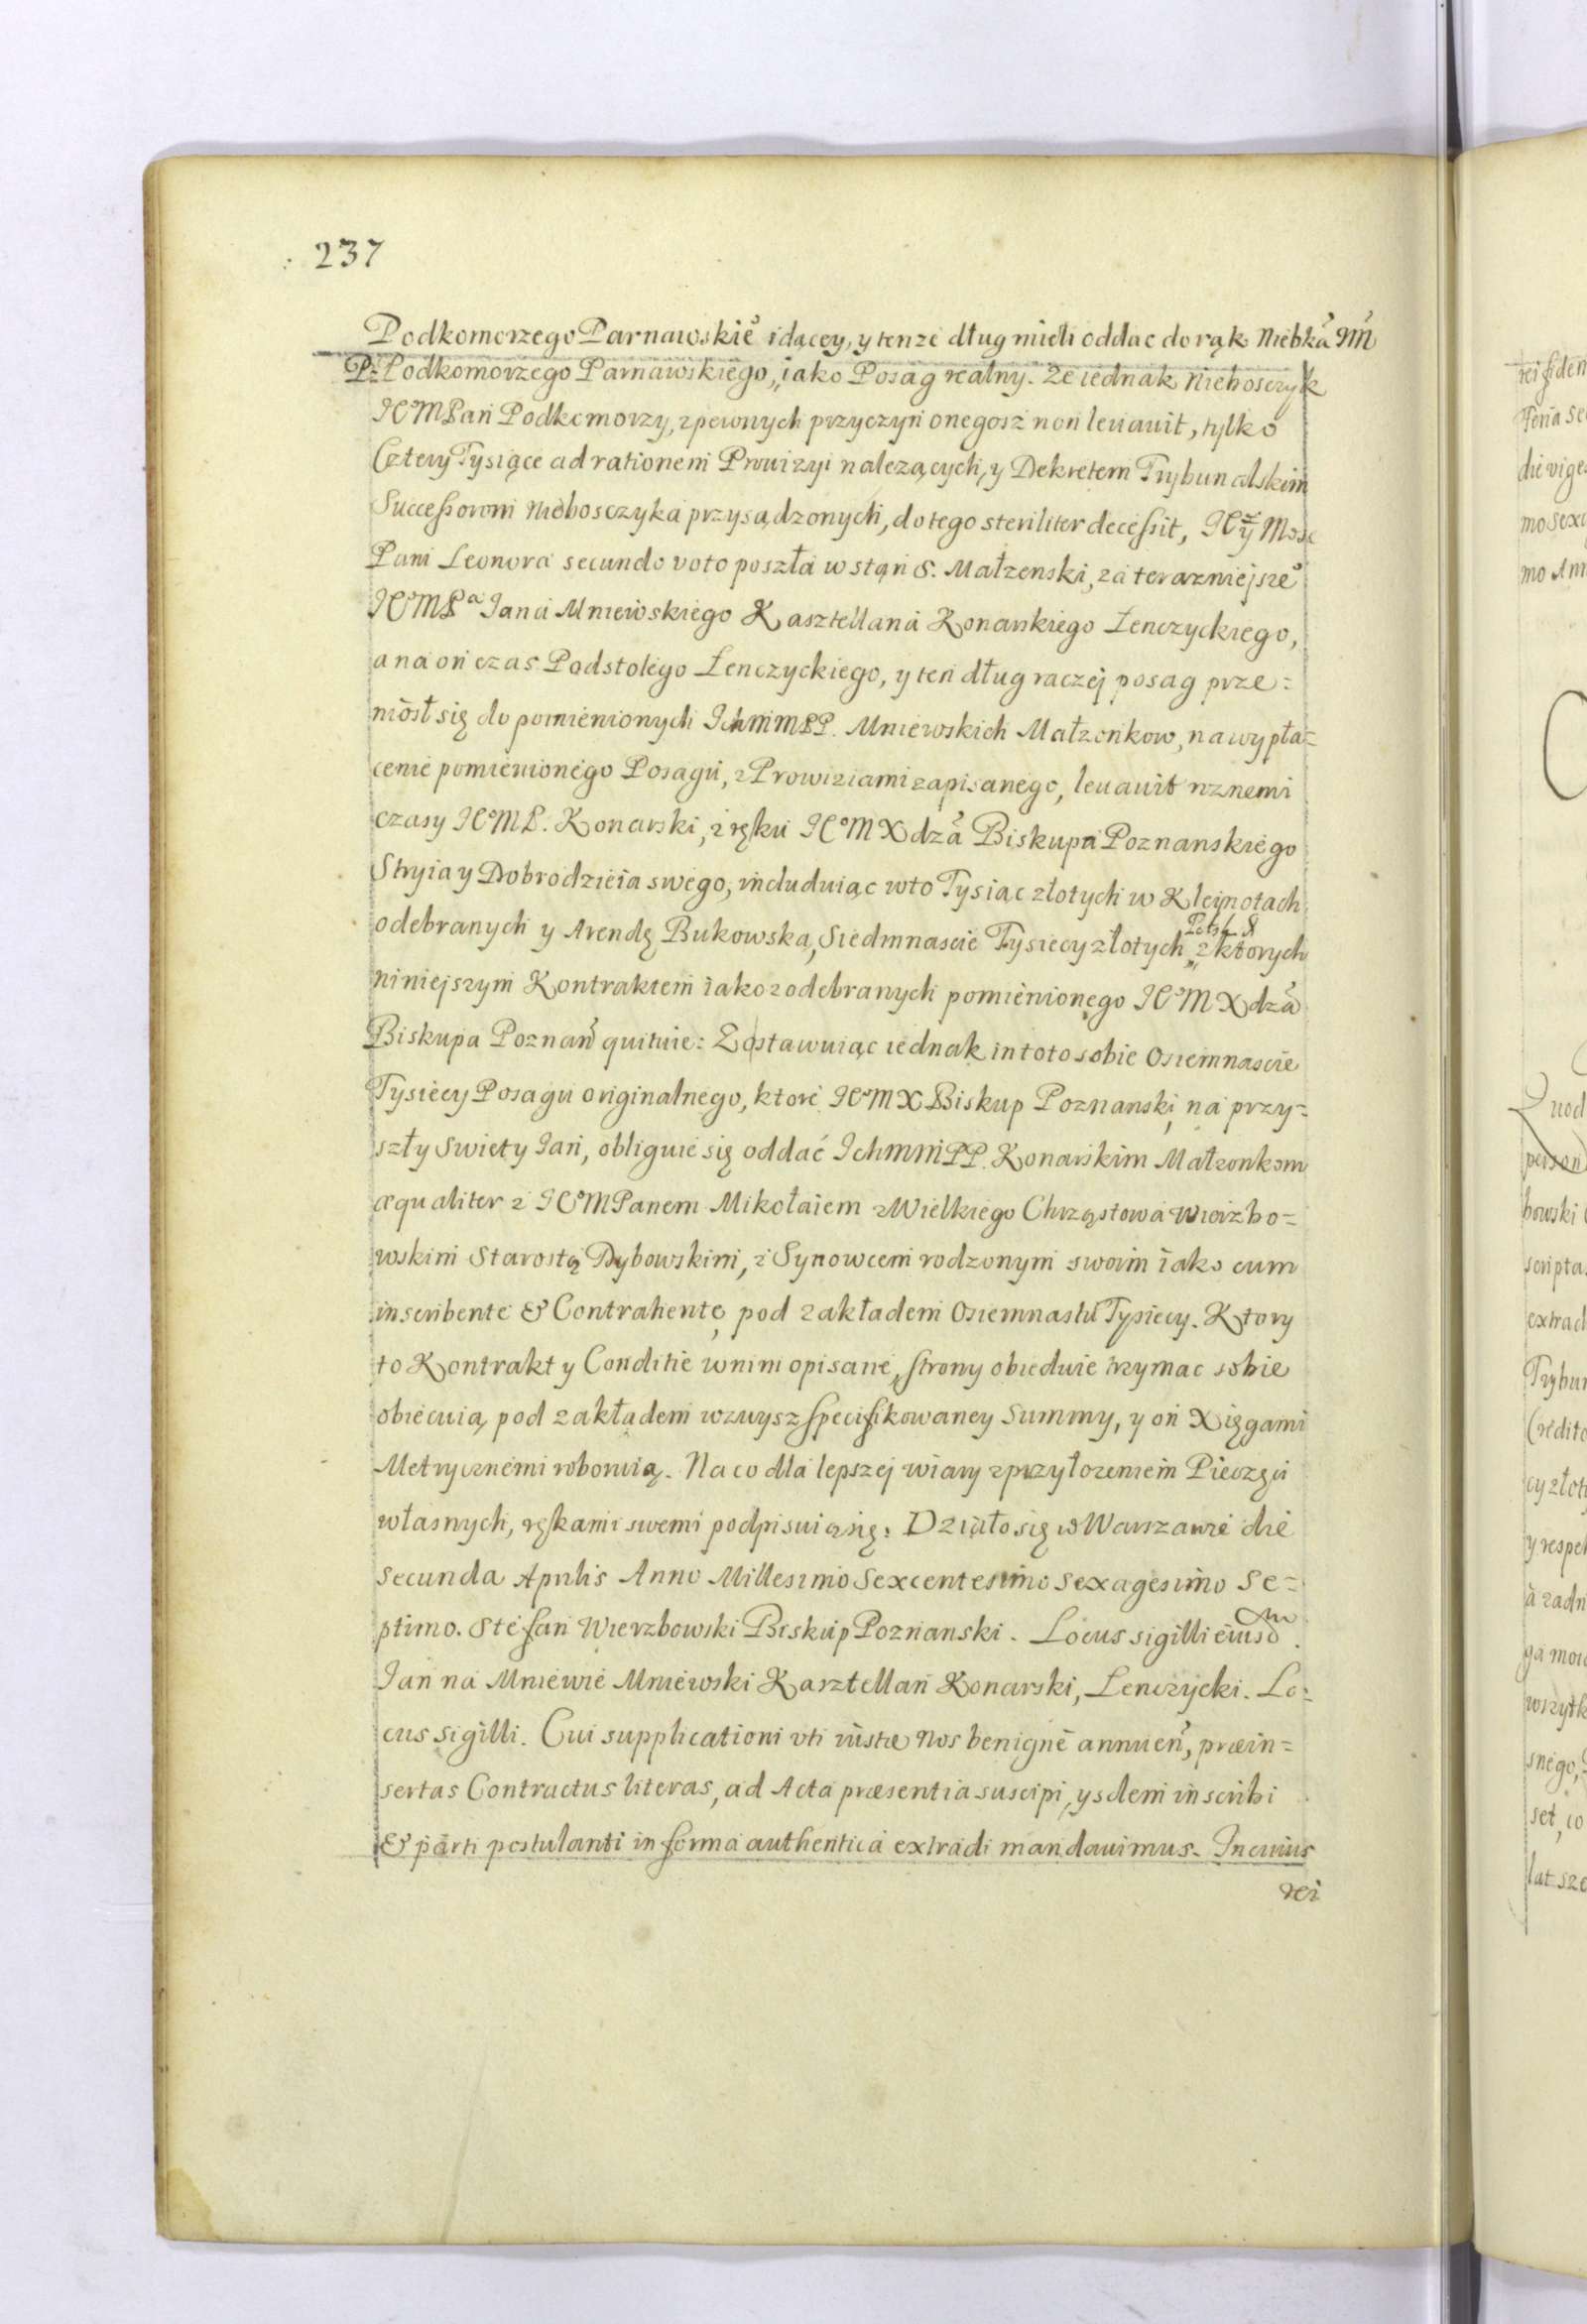 237
Podkomorzego Parnawskie° idącey, y tenze dług mieli oddac do rąk Niebka Im
P. Podkomorzego Parnawskiego, iako Posag realny. Ze iednak Niebosczyk
ICM Pan Podkomorzy, z pewnych przyczyn onegosz non leuauit, tylko
Cztery Tysiące ad rationem Prouizyi nalezących, y Dekretem Trybunalskim
Successorom Niebosczyka przysądzonych, do tego steriliter decessit, ICy Mosc
Pani Leonora secundo voto poszła w stan S. Małzenski, za terazniejsze°
ICMPa Jana Mniewskiego Kasztellana Konarskiego Łenczyckiego,
a na on czas Podstolego Łenczyckiego, y ten dług raczej posag prze=
niosł się do pomienionych IchmmPP. Mniewskich Małzonkow, na wypła=
cenie pomienionego Posagu, z Prowiziami zapisanego, leuauit roznemi
czasy ICMP. Konarski, z ręku ICM Xdza Biskupa Poznanskiego
Stryia y Dobrodzieia swego, includuiąc w to Tysiąc złotych w Kleynotach
odebranych y Arendę Bukowską, Siedmnascie Tysiecy złotych Polskich z ktorych
niniejszym Kontraktem iako z odebranych pomienionego ICM Xdza
Biskupa Poznan quituie: Zostawuiąc iednak in toto sobie Osiemnascie
Tysiecy Posagu originalnego, ktore ICM X Biskup Poznanski, na przy=
szły Swiety Jan, obliguie się oddać IchmmPP. Konarskim Małzonkom
æqualiter z ICM Panem Mikołaiem z Wielkiego Chrząstowa Wierzbo=
wskim Starostą Dybowskim, z Synowcem rodzonym swoim iako cum
inscribente & Contrahente, pod zakładem Osiemnastu Tysiecy. Ktory
to Kontrakt y Conditie w nim opisane, strony obiedwie trzymac sobie
obiecuią, pod zakładem wzwysz specifikowaney Summy, y on Xięgami
Metrycznemi roboruią. Na co dla lepszej wiary z przyłozeniem Pieczęci
własnych, rękami swemi podpisuią się. Działo się w Warszawie die
Secunda Aprilis Anno Millesimo Sexcentesimo Sexagesimo Se=
ptimo. Stefan Wierzbowski Biskup Poznanski. Locus sigilli eiusdm.
Jan na Mniewie Mniewski Kasztellan Konarski, Lenczycki. Lo=
cus sigilli. Cui supplicationi vti iustæ Nos benignè annuen, præin=
sertas Contractus literas, ad Acta præsentia suscipi, ysdem inscribi
& parti postulanti in forma authentica extradi mandauimus. In cuius
rei